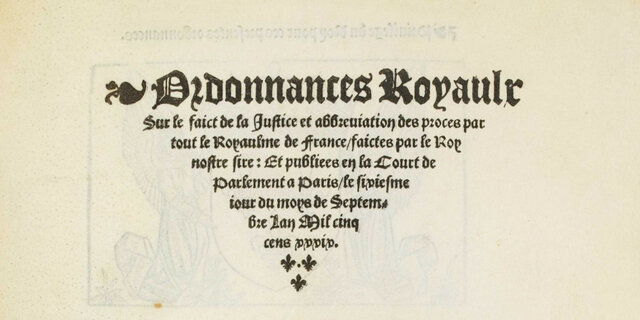 Ordonnances Royaulx
Sur le faict de la Justice et abbreviation des proces par
tout le Royaulme de France/faictes par le Roy
nostre sire: Et publiees en la Court de
Parlement a Paris/le sixiesme
iour du moys de Septem=
bre Lan Mil cinq
cens xxxix.